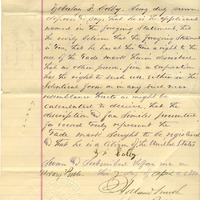 being duly sworn
deposes & says that he is the applicant
named in the foregoing statement, that
he verily believes that the foregoing statement
is true, that he has at this time a right to the use
of the Trade mark therein described, that
no other person, firm or corporation
has the right to such use, either in the
identical form or in any such near
resemblance thereto as might be
calculated to deceive, that the
description & fac similes presented
for record truly represent the
Trade mark sought to be registered
& that he is a citizen of the United States
Sworn & Subscribed before me a
Notary Public this day of April